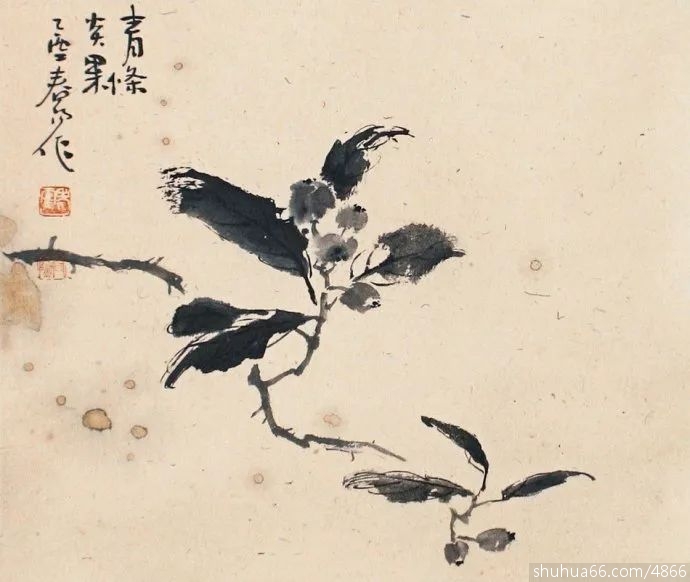 青條
炎果
乙酉春作
shuhua66.com/4866